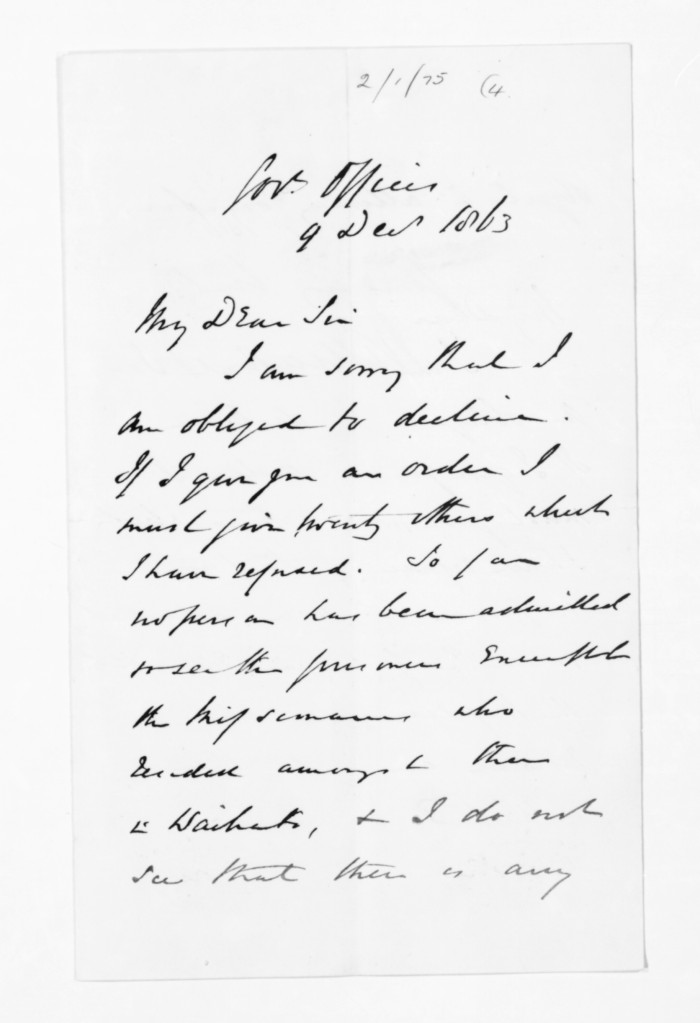 2/1/75 (4
Govt Offices
9 Decr 1863
My Dear Sir
I am sorry that I
am obliged to decline.
If I give you an order I
must give twenty others which
I have refused. So far
no person has been admitted
to see the prisoners Except
the Missionaries who
resided amongst them
in Waikato, & I do not
see that there is any